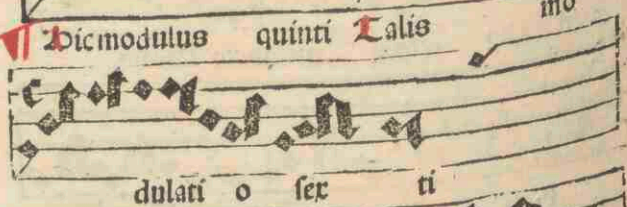 mo
¶ Hic modulus quinti Talis
dulati o sex ti